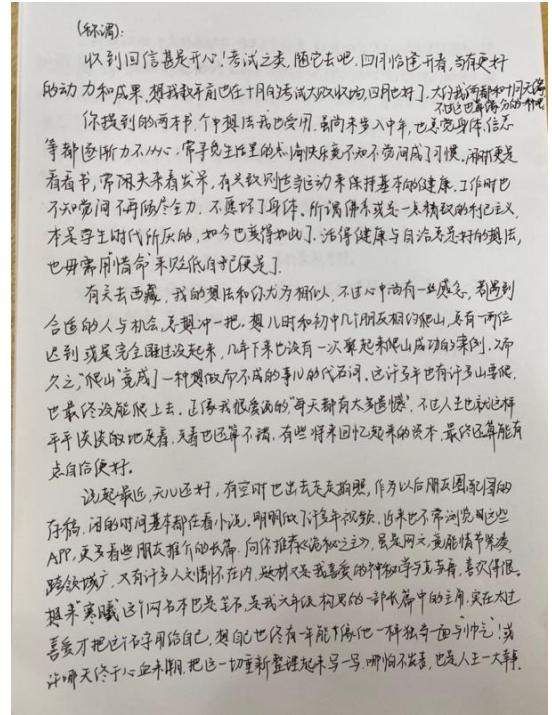 (称谓):
收到回信甚是开心！考试之类，随它去吧，四月恰逢开春，当有更好
的动力和成果，想我数年前也在十月自考试大败收场，四月也好了，大约我们都和十月无缘
不过这也算缘分的一种吧
你提到的两本书，个中想法我也受用，虽尚未步入中年，也总觉身体、信念
等都逐渐力不从心，常寻觅生活里的太清快乐竟不知不觉间成了习惯，闲暇便是
看看书，常闲来来看云呆，有兴致则适当运动来保持基本的健康。工作时也
不知觉间不再倾尽全力，不愿坏了身体。所谓佛系或是一点精致的利己主义，
本是学生时代所厌的，如今也变得如此了，活得健康与自洽总是好的想法，
也毋需用"惜命"来贬低自己便是了。
有关去西藏，我的想法和你尤为相似，不过心中尚有一丝感念，若遇到
合适的人与机会，总想冲一把。想儿时和初中几个朋友相约爬山，总有一两位
迟到或是完全睡过没起来，几年下来也没有一次聚起来爬山成功的案例，久而
久之，"爬山"竟成了一种想做而不成的事儿的代名词。这许多年也有许多山要爬，
也最终没能爬上去。正像我很喜欢的"每天都有太多遗憾"，不过人生也就这样
平平淡淡的地走着，走着也还算不错，有些将来回忆起来的资本，最终还算能有
点自洽便好。
说起最近，元儿还好，有空时也出去走走拍照，作为以后朋友圈配图的
存稿，闲的时间基本都在看小说。明明做了许多年视频，近来也不常浏览用这些
APP，更多看些朋友推介的长篇。向你推荐《诡秘之主》，虽是网文，竟能情节紧凑
跨领域广，又有许多人文情怀在内，题材又是我喜爱的神秘学与克苏鲁，喜欢得很。
想来"寒曦"这个网名本也是笔下，是我六年级构思的一部长篇中的主角，实在太过
喜爱才把这名字用给自己，想自己也终有一年能像他一样独当一面与帅气！或
许哪天终于心血来潮，把这一切重新整理起来写一写，哪怕不发表，也是人生一大幸事。